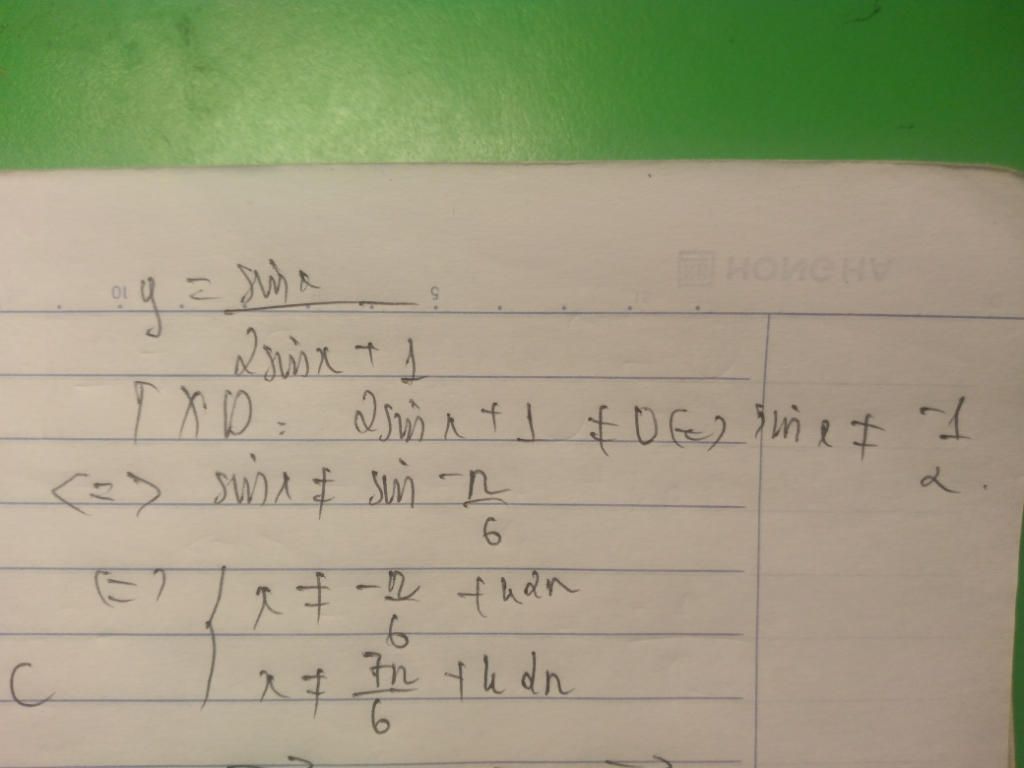 HONG HA
10 5
y = sinx
2sinx + 1
TXD: 2sinx + 1 ≠ 0 (=) sinx ≠ -1
2.
<=> sinx ≠ sin -π
6
(=) { x ≠ -π/6 + k2π
x ≠ 7π/6 + k2π
C